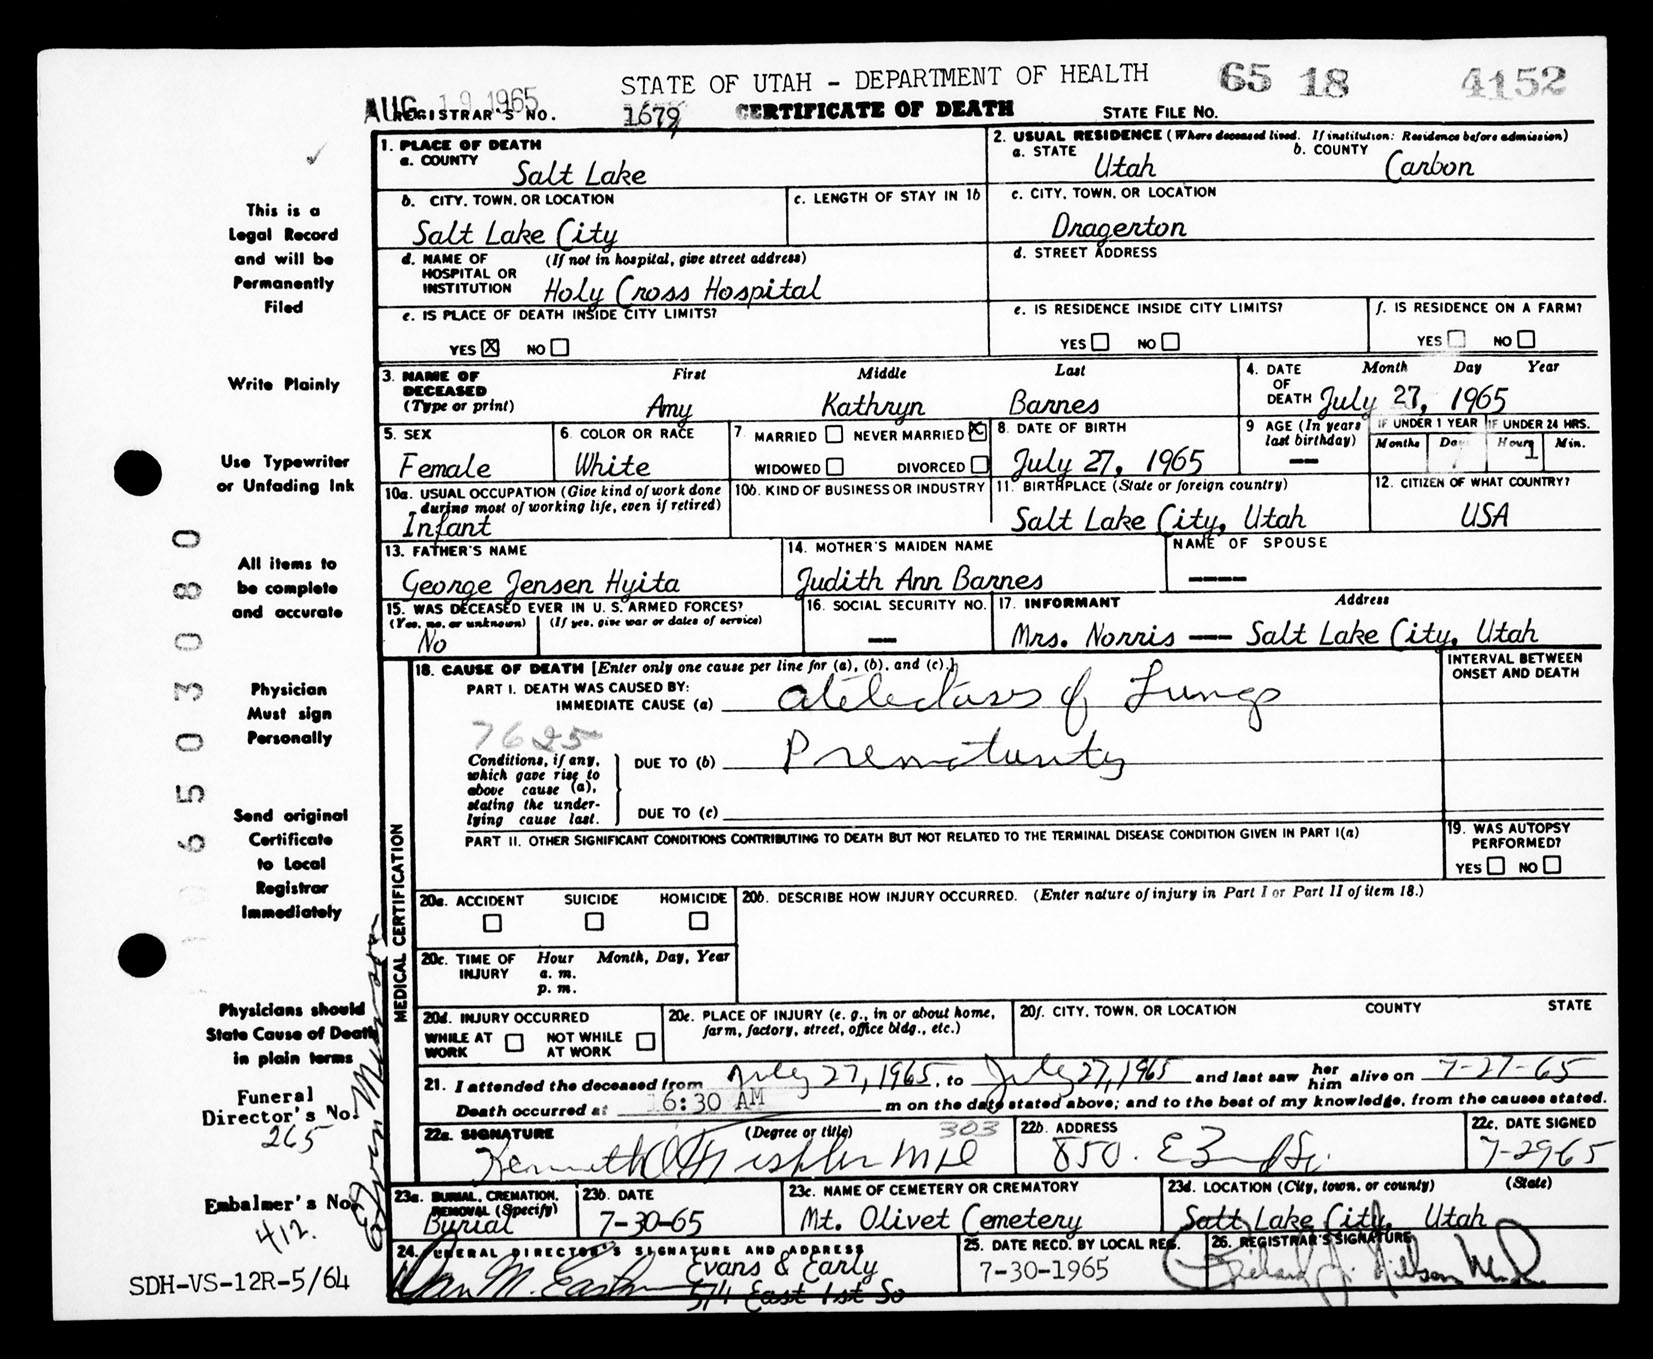 STATE OF UTAH - DEPARTMENT OF HEALTH 65 18 4152
AUG 19 1965
REGISTRAR'S NO. 1679 CERTIFICATE OF DEATH STATE FILE NO.
1. PLACE OF DEATH
a. COUNTY Salt Lake
2. USUAL RESIDENCE (Where deceased lived. If institution: Residence before admission)
a. STATE Utah b. COUNTY Carbon
b. CITY, TOWN, OR LOCATION Salt Lake City
c. LENGTH OF STAY IN 1b
c. CITY, TOWN, OR LOCATION Dragerton
d. NAME OF HOSPITAL OR INSTITUTION (If not in hospital, give street address) Holy Cross Hospital
d. STREET ADDRESS
e. IS PLACE OF DEATH INSIDE CITY LIMITS? YES X NO
e. IS RESIDENCE INSIDE CITY LIMITS? YES NO
f. IS RESIDENCE ON A FARM? YES NO
3. NAME OF DECEASED (Type or print) First Middle Last
Amy Kathryn Barnes
4. DATE OF DEATH Month Day Year
July 27, 1965
5. SEX Female
6. COLOR OR RACE White
7. MARRIED NEVER MARRIED X WIDOWED DIVORCED
8. DATE OF BIRTH July 27, 1965
9 AGE (In years last birthday) —
IF UNDER 1 YEAR Months Days
IF UNDER 24 HRS. Hours 1 Min.
10a. USUAL OCCUPATION (Give kind of work done during most of working life, even if retired) Infant
10b. KIND OF BUSINESS OR INDUSTRY
11. BIRTHPLACE (State or foreign country) Salt Lake City, Utah
12. CITIZEN OF WHAT COUNTRY? USA
13. FATHER'S NAME George Jensen Hyita
14. MOTHER'S MAIDEN NAME Judith Ann Barnes
NAME OF SPOUSE ----
15. WAS DECEASED EVER IN U. S. ARMED FORCES? (Yes, no, or unknown) (If yes, give war or dates of service) No
16. SOCIAL SECURITY NO. —
17. INFORMANT Address
Mrs. Norris — Salt Lake City, Utah
MEDICAL CERTIFICATION
18. CAUSE OF DEATH [Enter only one cause per line for (a), (b), and (c).]
PART I. DEATH WAS CAUSED BY:
IMMEDIATE CAUSE (a) Atelectasis of Lungs
INTERVAL BETWEEN ONSET AND DEATH
7625
Conditions, if any, which gave rise to above cause (a), stating the underlying cause last.
DUE TO (b) Prematurity
DUE TO (c)
PART II. OTHER SIGNIFICANT CONDITIONS CONTRIBUTING TO DEATH BUT NOT RELATED TO THE TERMINAL DISEASE CONDITION GIVEN IN PART I(a)
19. WAS AUTOPSY PERFORMED? YES NO
20a. ACCIDENT SUICIDE HOMICIDE
20b. DESCRIBE HOW INJURY OCCURRED. (Enter nature of injury in Part I or Part II of item 18.)
20c. TIME OF INJURY Hour a. m. p. m. Month, Day, Year
20d. INJURY OCCURRED WHILE AT WORK NOT WHILE AT WORK
20e. PLACE OF INJURY (e. g., in or about home, farm, factory, street, office bldg., etc.)
20f. CITY, TOWN, OR LOCATION COUNTY STATE
21. I attended the deceased from July 27, 1965, to July 27, 1965 and last saw her him alive on 7-27-65
Death occurred at 6:30 AM m on the date stated above; and to the best of my knowledge, from the causes stated.
22a. SIGNATURE (Degree or title) 303
Kenneth MD
22b. ADDRESS 850. E
22c. DATE SIGNED 7-29-65
23a. BURIAL, CREMATION, REMOVAL (Specify) Burial
23b. DATE 7-30-65
23c. NAME OF CEMETERY OR CREMATORY Mt. Olivet Cemetery
23d. LOCATION (City, town, or county) (State) Salt Lake City, Utah
24. FUNERAL DIRECTOR'S SIGNATURE AND ADDRESS
Evans & Early
574 East 1st So
25. DATE RECD. BY LOCAL REG. 7-30-1965
26. REGISTRAR'S SIGNATURE
This is a
Legal Record
and will be
Permanently
Filed
Write Plainly
Use Typewriter
or Unfading Ink
All items to
be complete
and accurate
Physician
Must sign
Personally
Send original
Certificate
to Local
Registrar
Immediately
Physicians should
State Cause of Death
in plain terms
Funeral
Director's No.
265
Embalmer's No.
412.
SDH-VS-12R-5/64
6503080